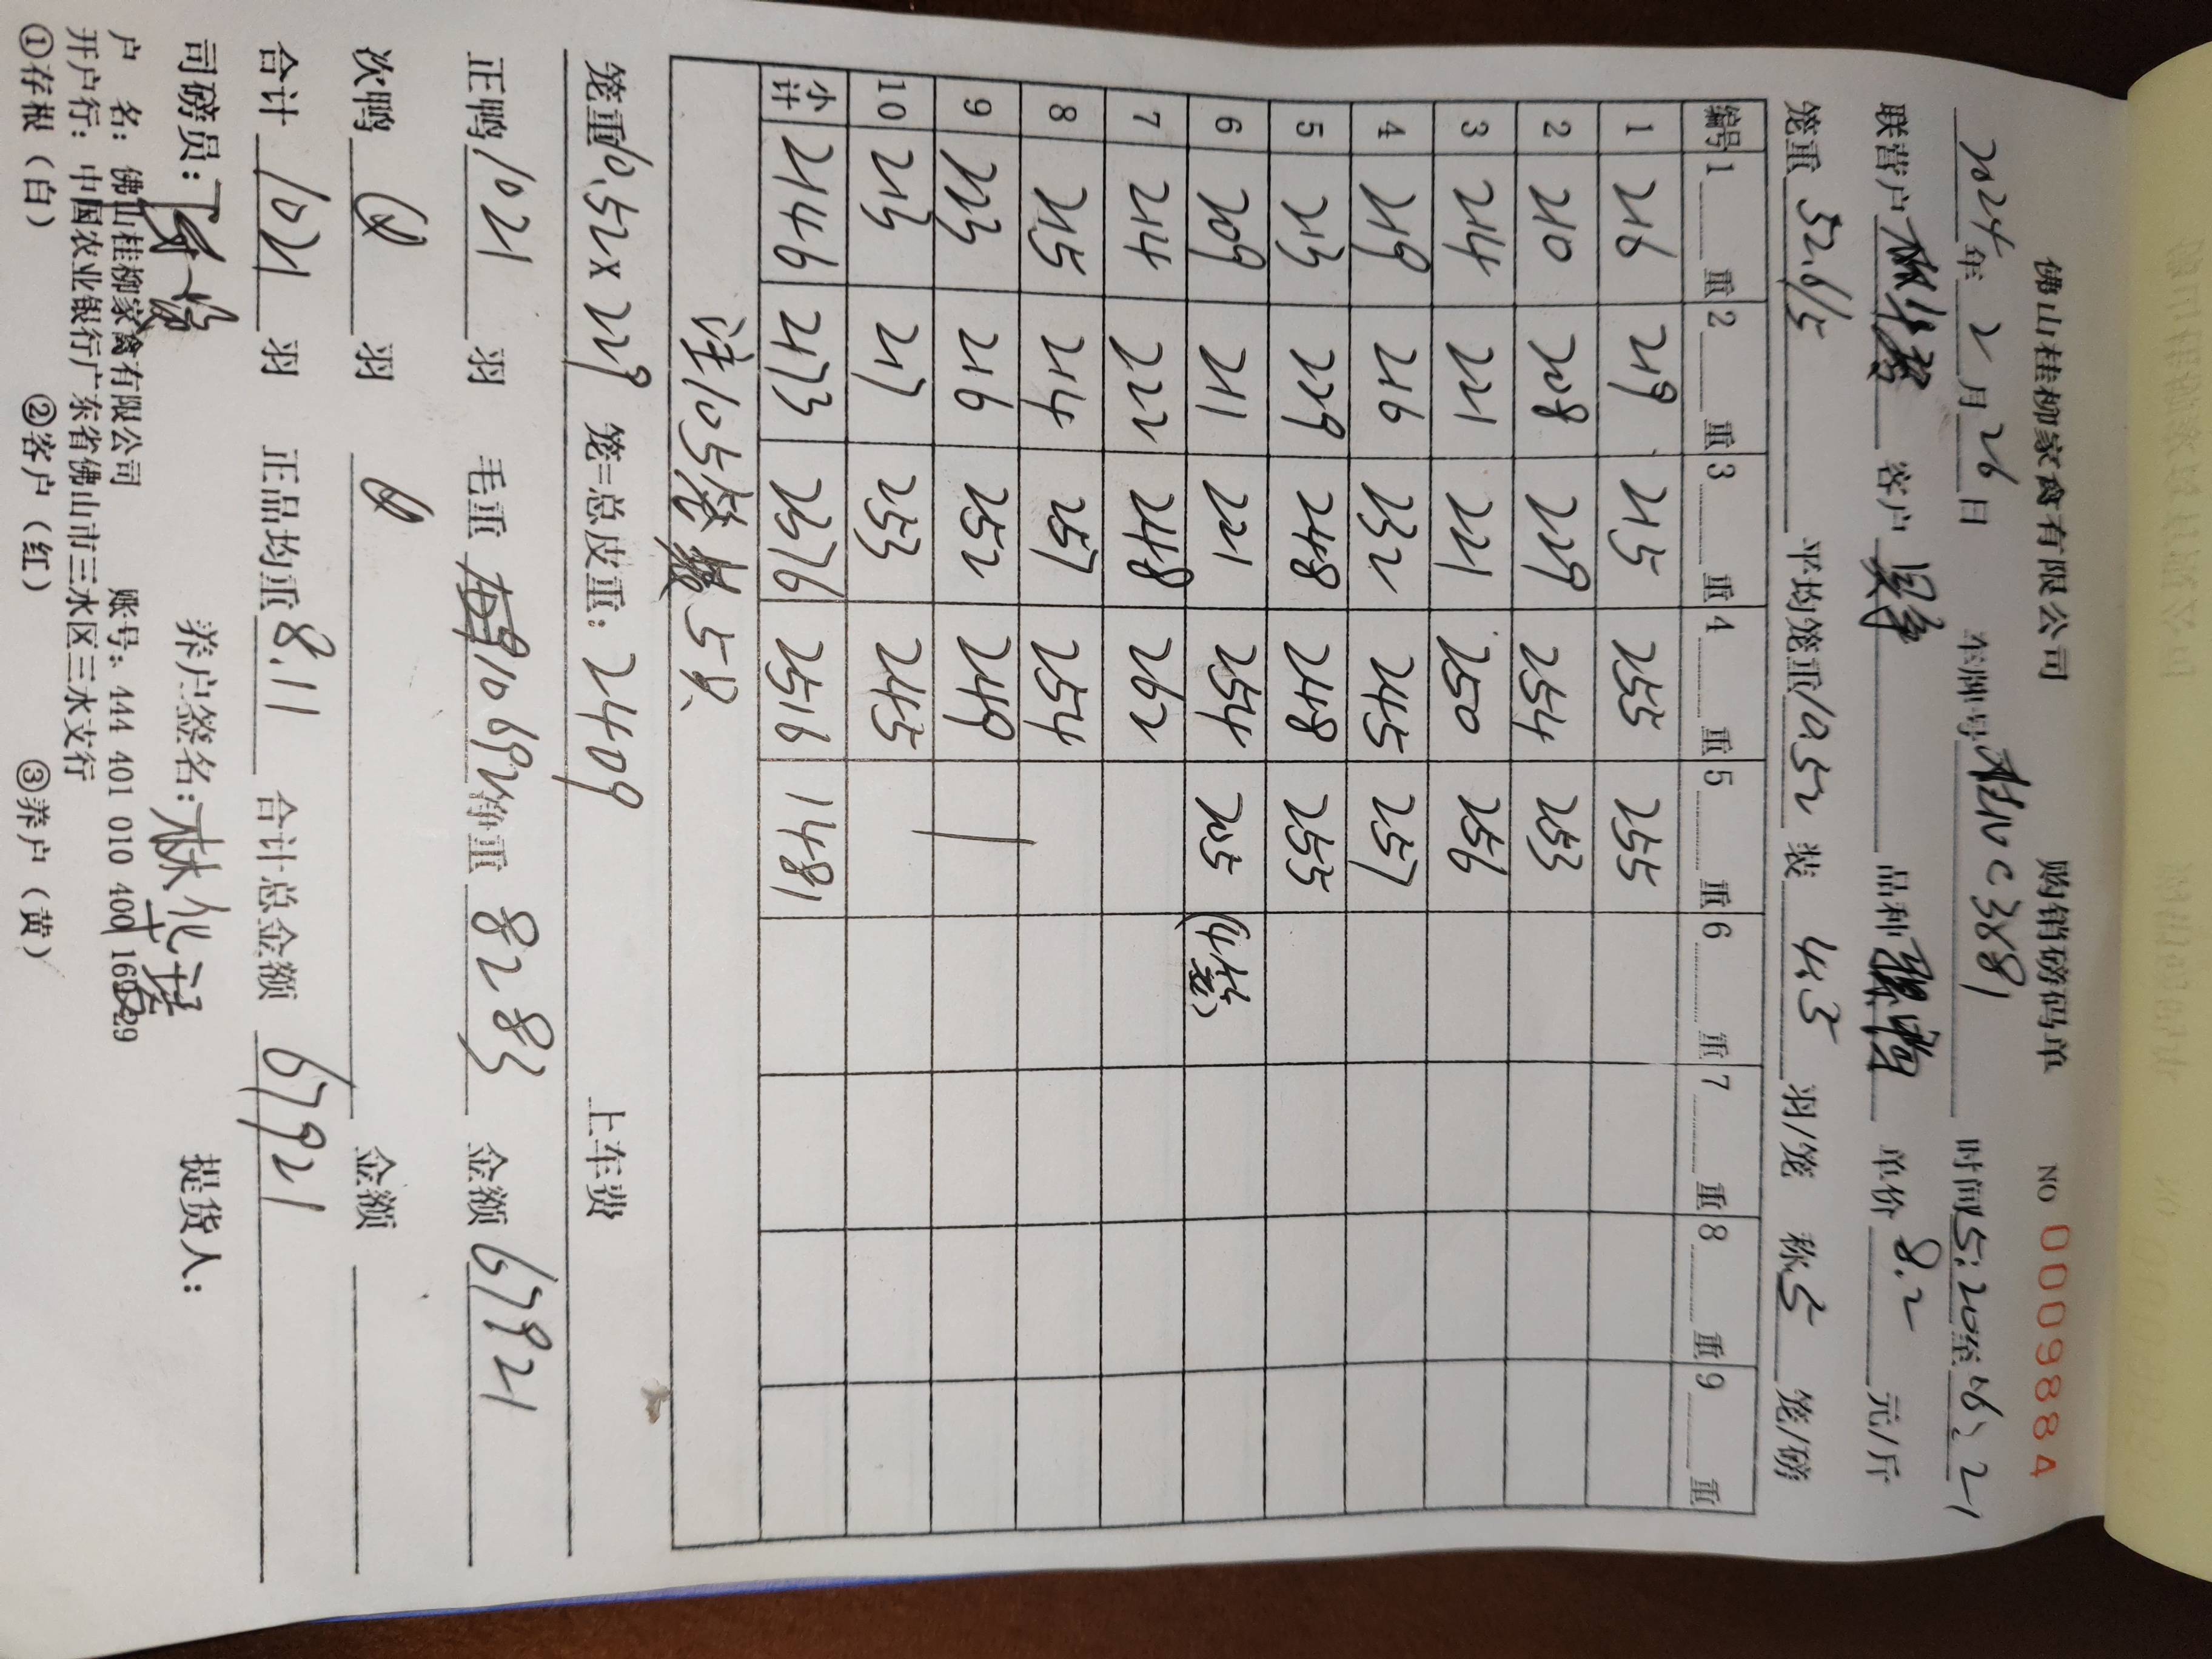 佛山桂柳家禽有限公司 购销磅码单 NO 0009884
2024年2月26日 车牌号桂NC3681 时间5:20至6:21
联营户 客户 品种 单价8.2元/斤
笼重52.6/5 平均笼重10.52 装4.5羽/笼 称5笼/磅
编号 1 重 2 重 3 重 4 重 5 重 6 重 7 重 8 重 9 重
1 216 219 215 255 255
2 210 208 229 254 253
3 214 221 221 250 256
4 219 216 232 245 257
5 213 229 248 248 255
6 209 211 221 254 205 (4笼)
7 214 222 248 262
8 215 214 257 254
9 223 216 252 249
10 213 217 253 245
小计 2146 2173 2376 2516 1481
注105笼 5只
笼重10.52×229笼=总皮重:2409 上车费
正鸭1021羽 毛重10692净重8283 金额67921
次鸭0羽 0 金额
合计1021羽 正品均重8.11 合计总金额67921
司磅员: 养户签名:林化 提货人:
户 名:佛山桂柳家禽有限公司 账号:444 401 010 400
开户行:中国农业银行广东省佛山市三水区三水支行
①存根(白) ②客户(红) ③养户(黄)